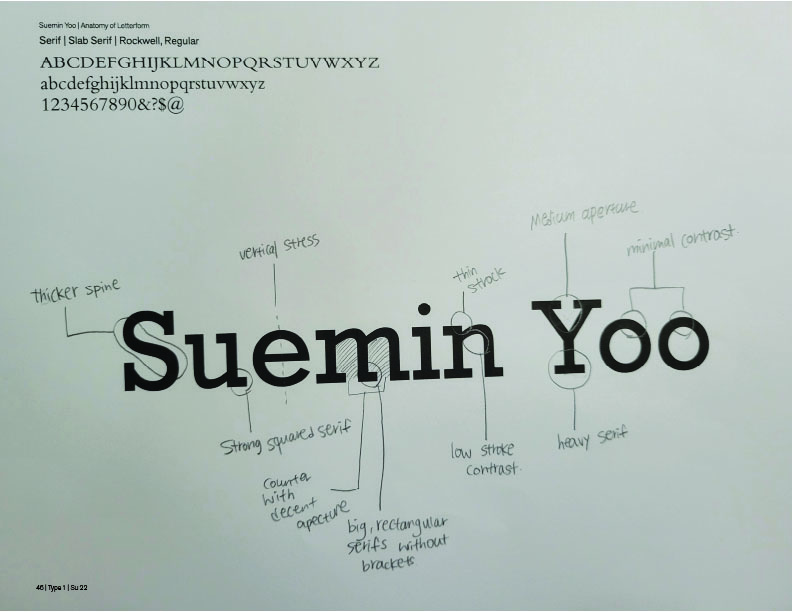 Suemin Yoo | Anatomy of Letterform
Serif | Slab Serif | Rockwell, Regular
ABCDEFGHIJKLMNOPQRSTUVWXYZ
abcdefghijklmnopqrstuvwxyz
1234567890&?$@
Medium aperture
vertical stress
minimal contrast.
thin
strock
thicker spine
Suemin Yoo
Strong squared serif
heavy serif
low stroke
contrast.
counter
with
decent
aperture
big, rectangular
serifs without
brackets.
46 | Type 1 | Su 22